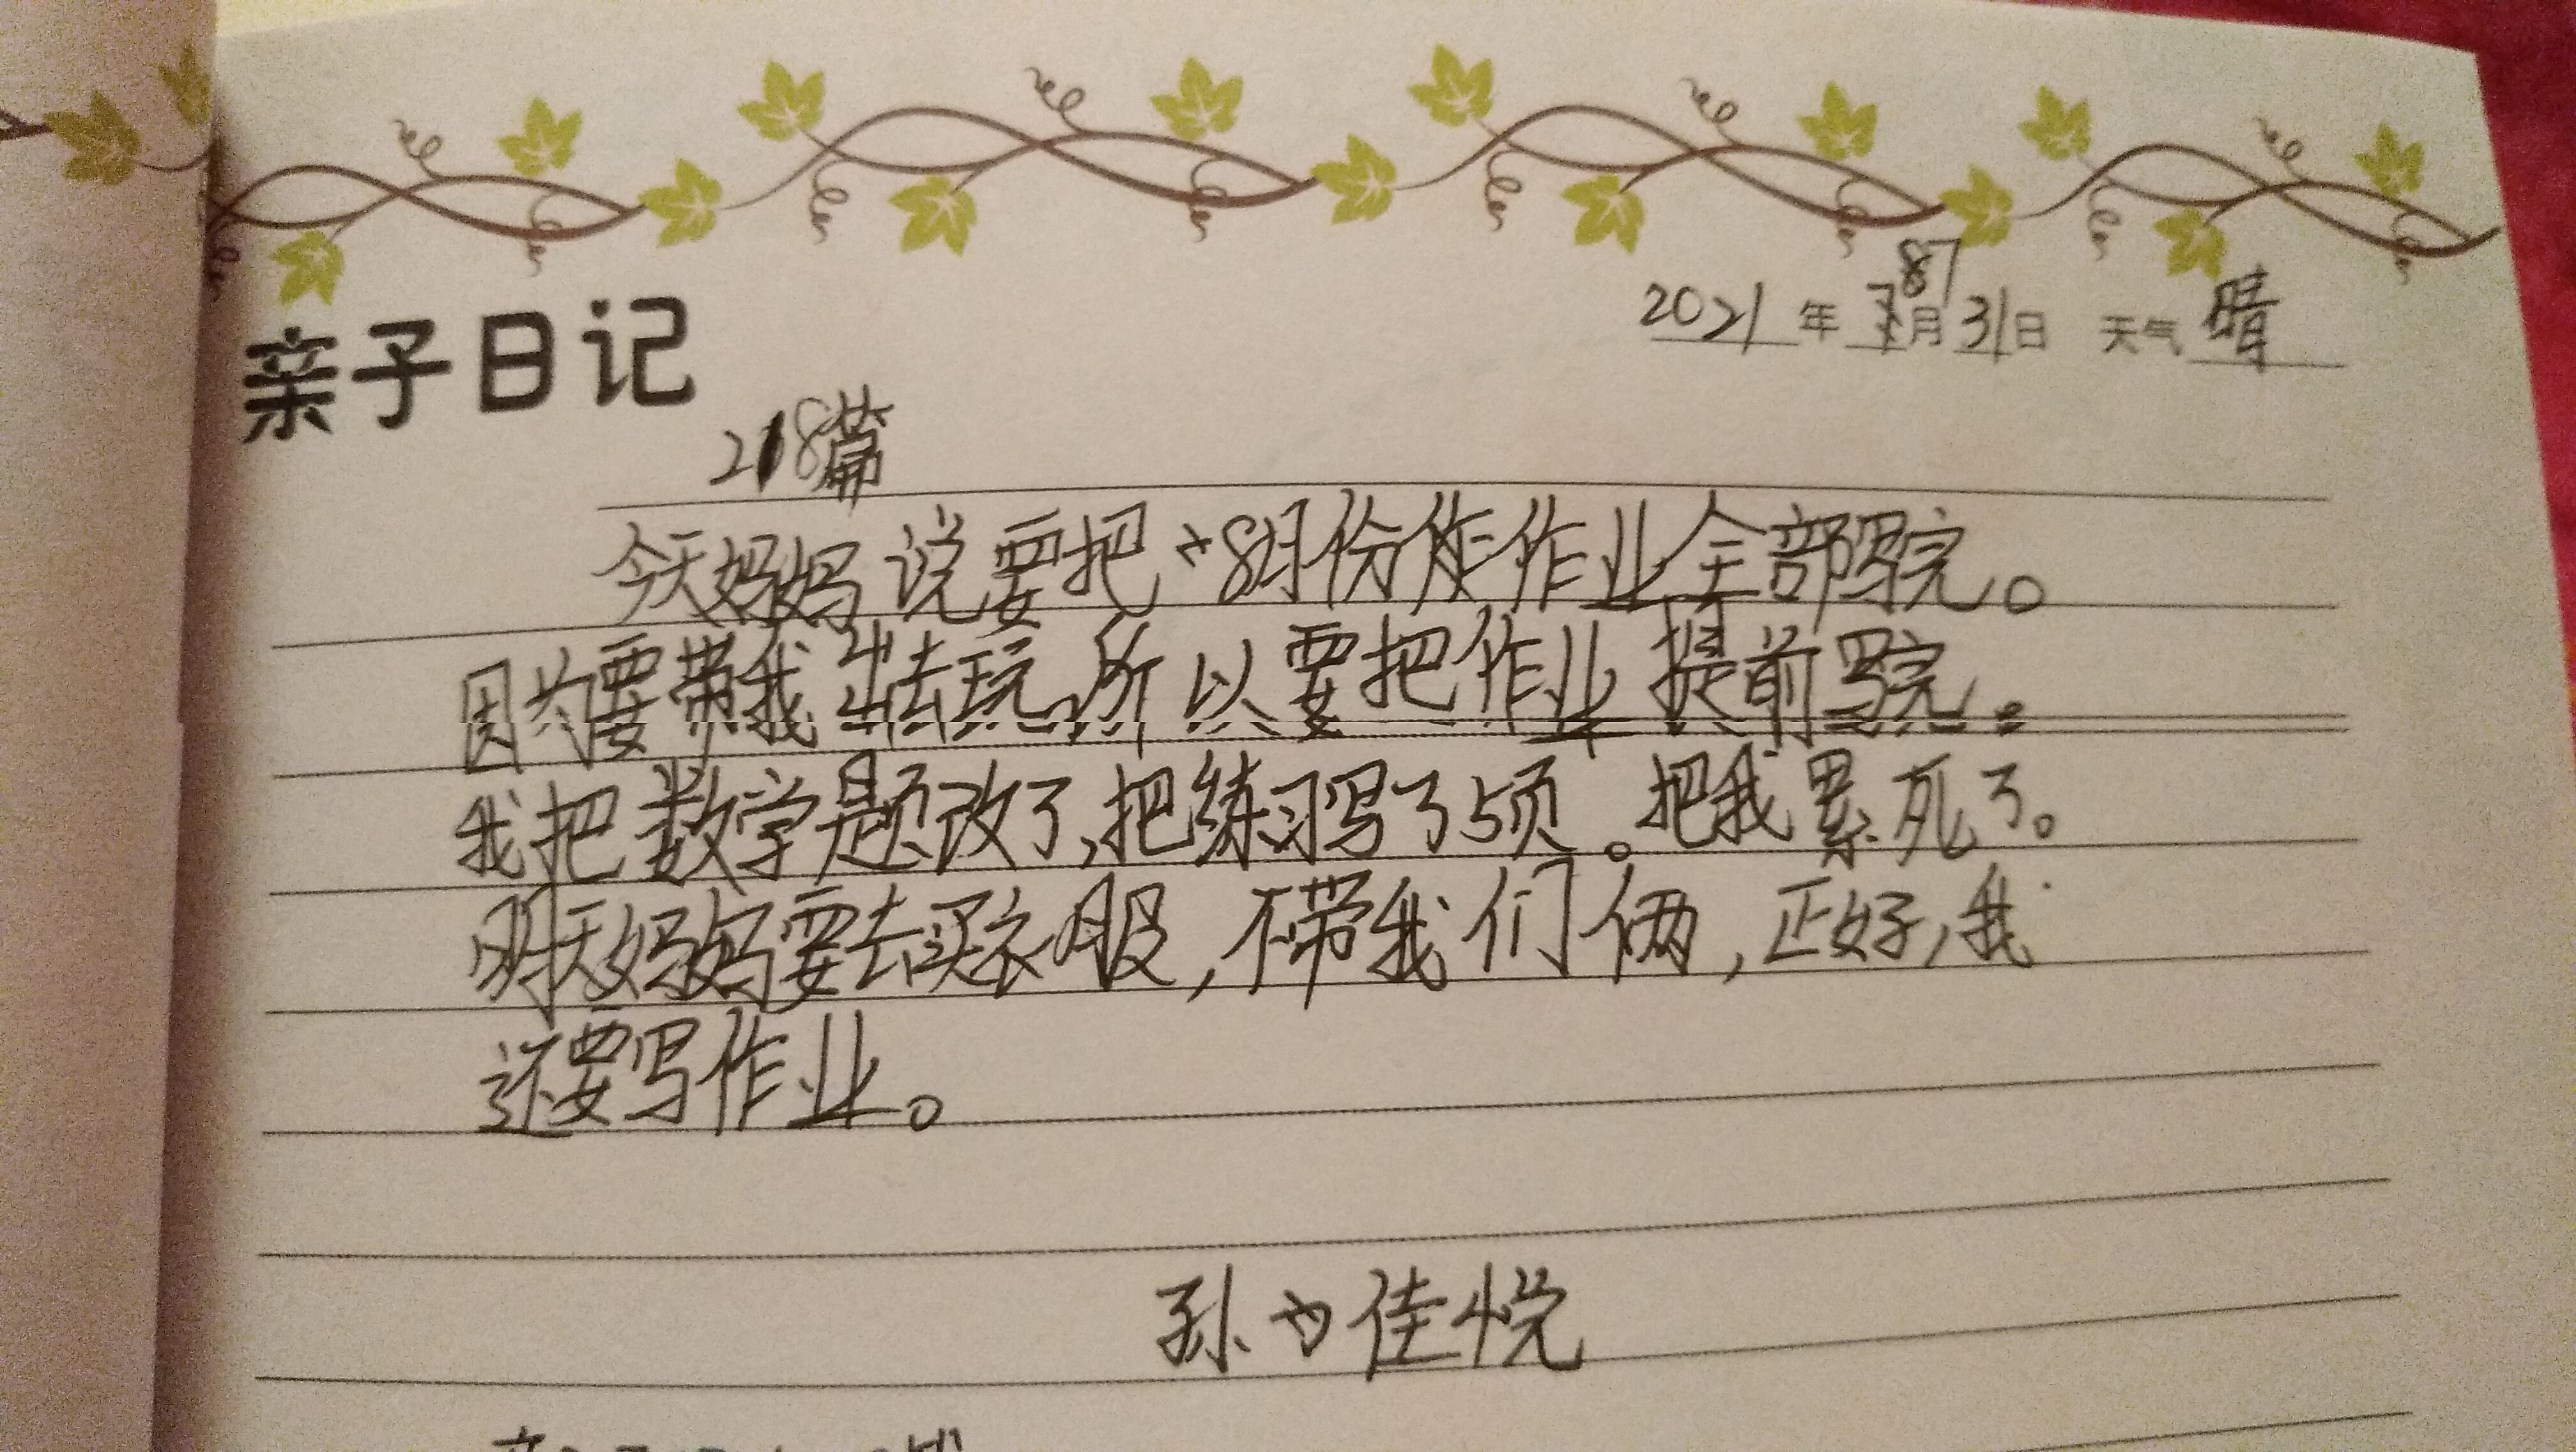 2021年7月31日 天气 晴
亲子日记
218篇
今天妈妈说要把8月份作作业全部写完。
因为要带我出去玩,所以要把作业提前写完。
我把数学题改了,把练习写了5页。把我累死了。
明天妈妈要去买衣服,不带我们俩,正好,我
还要写作业。
孙 佳悦